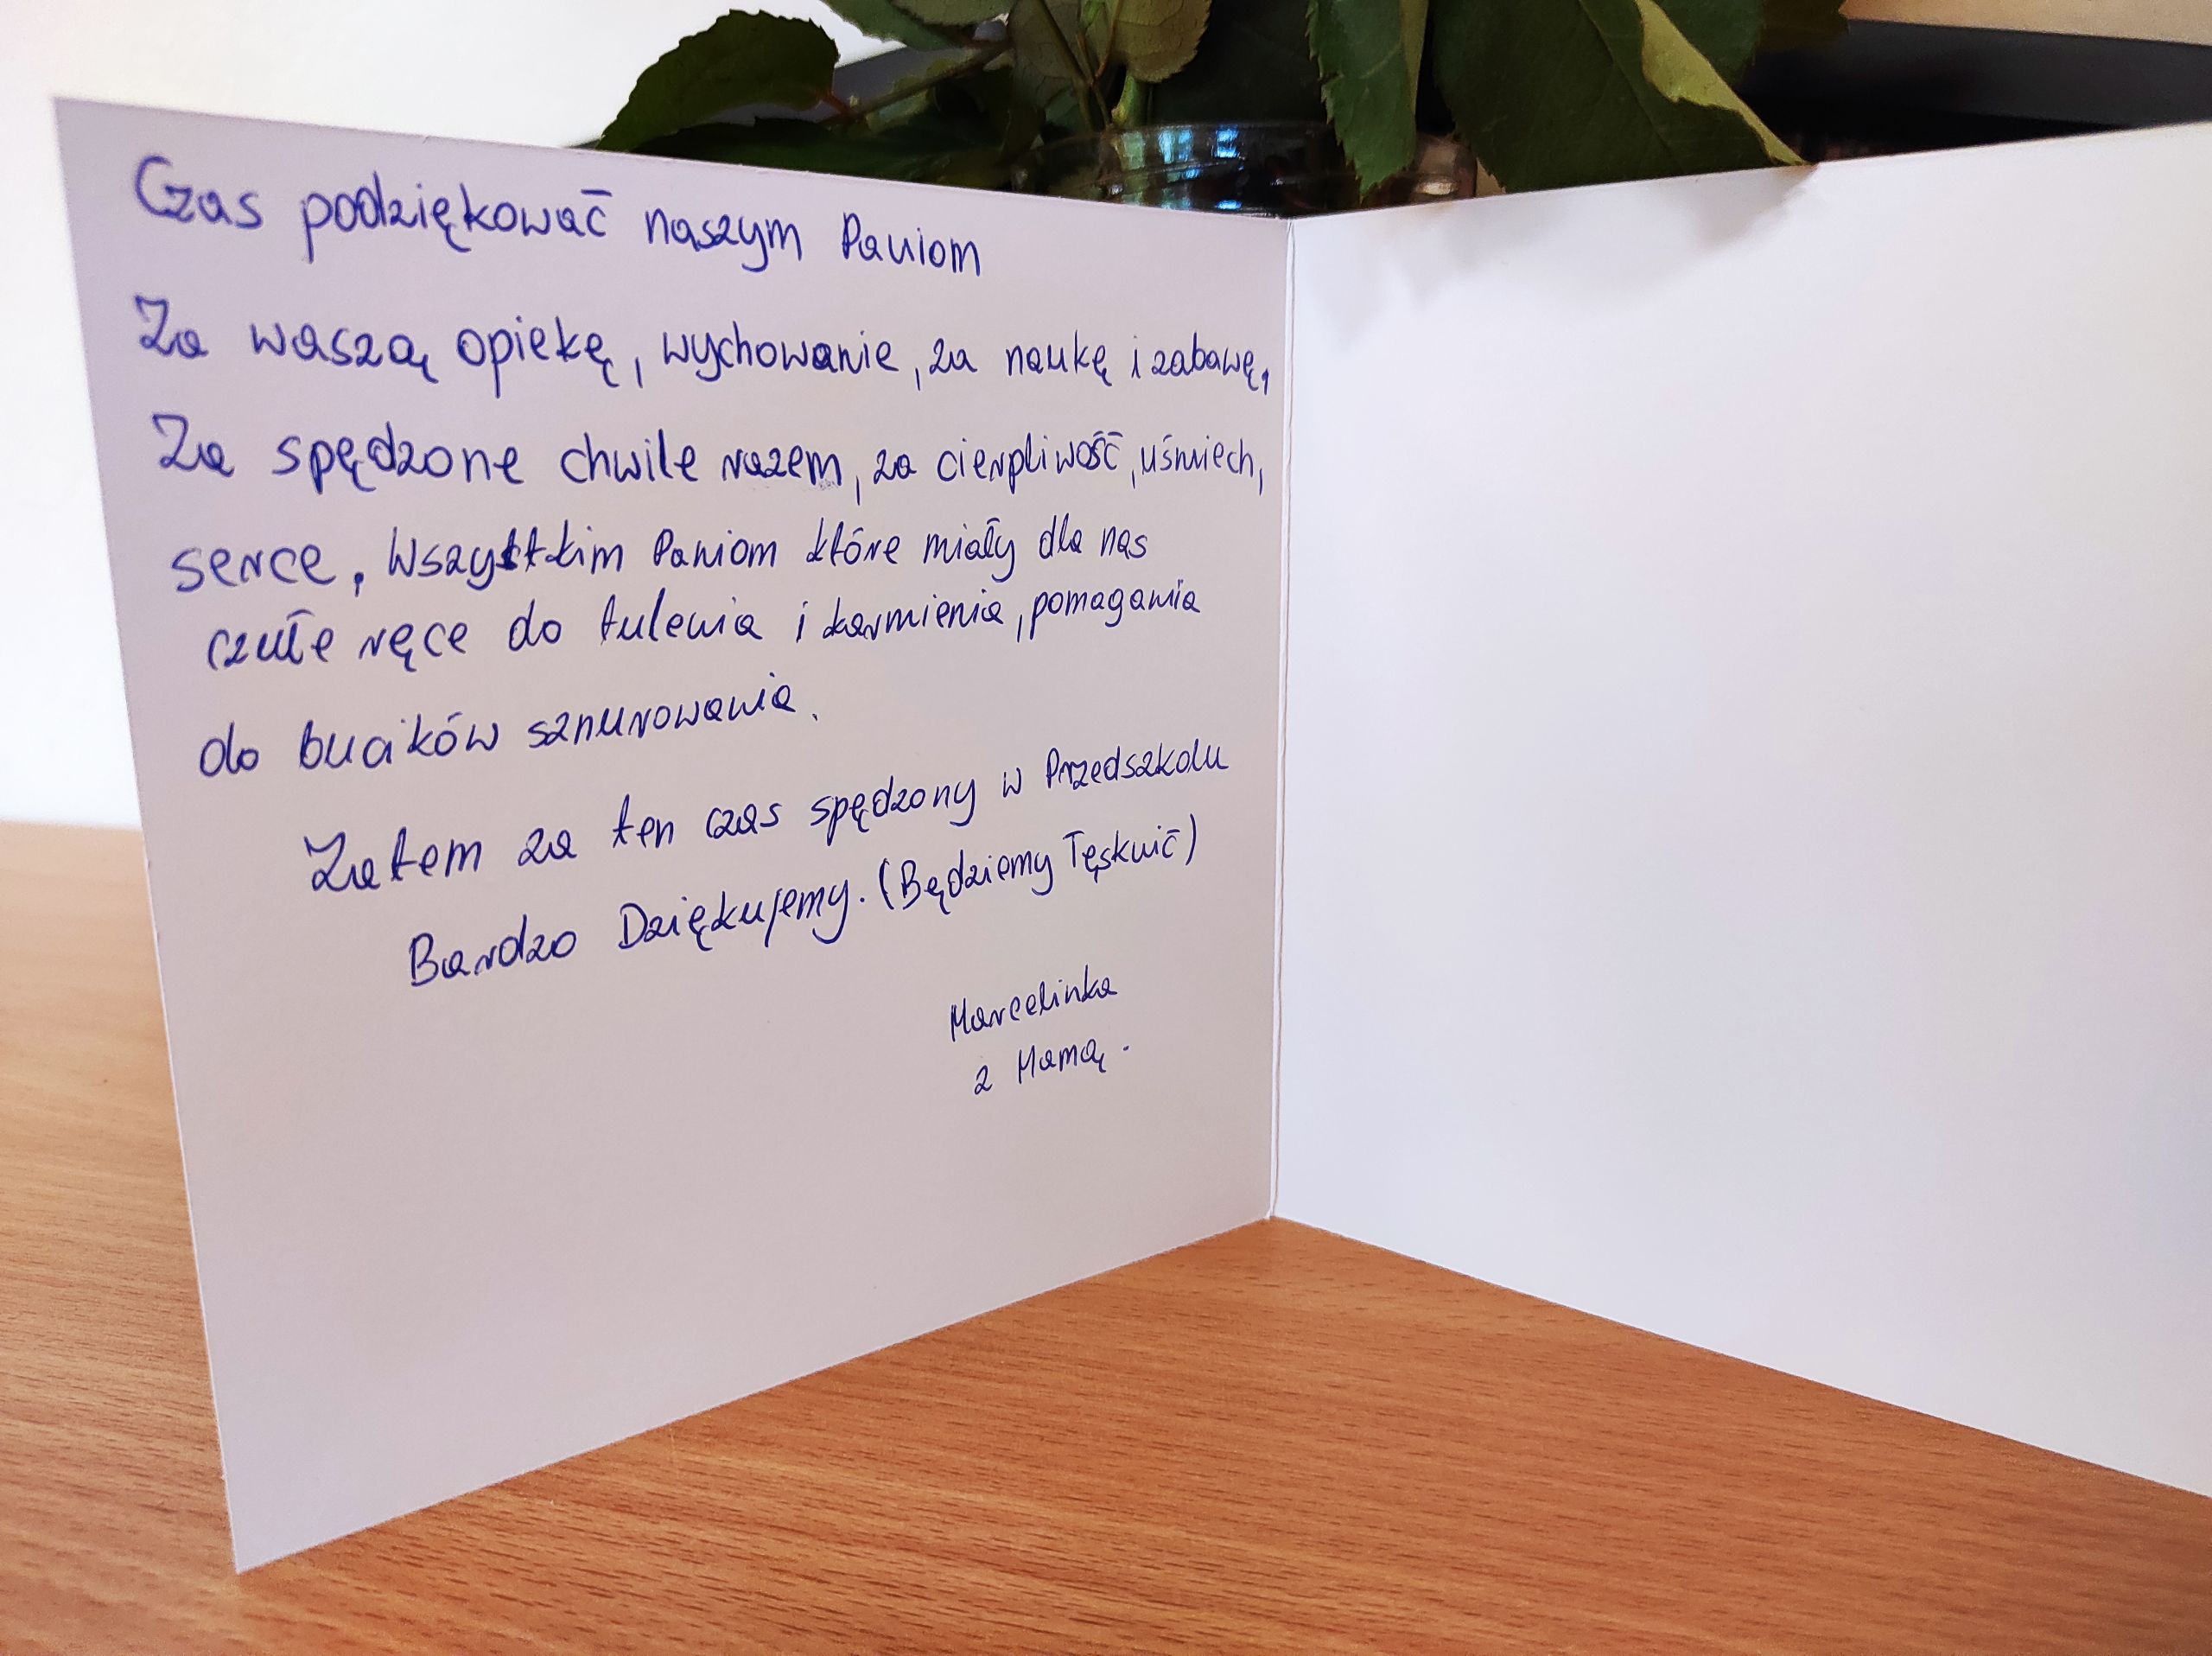 Czas podziękować naszym Paniom
Za waszą opiekę, wychowanie, za naukę i zabawę,
Za spędzone chwile razem, za cierpliwość, uśmiech,
serce, Wszystkim Paniom które miały dla nas
czułe ręce do tulenia i karmienia, pomagania
do bucików sznurowania.
Zatem za ten czas spędzony w Przedszkolu
Bardzo Dziękujemy. (Będziemy Tęsknić)
Marcelinka
z Mamą.